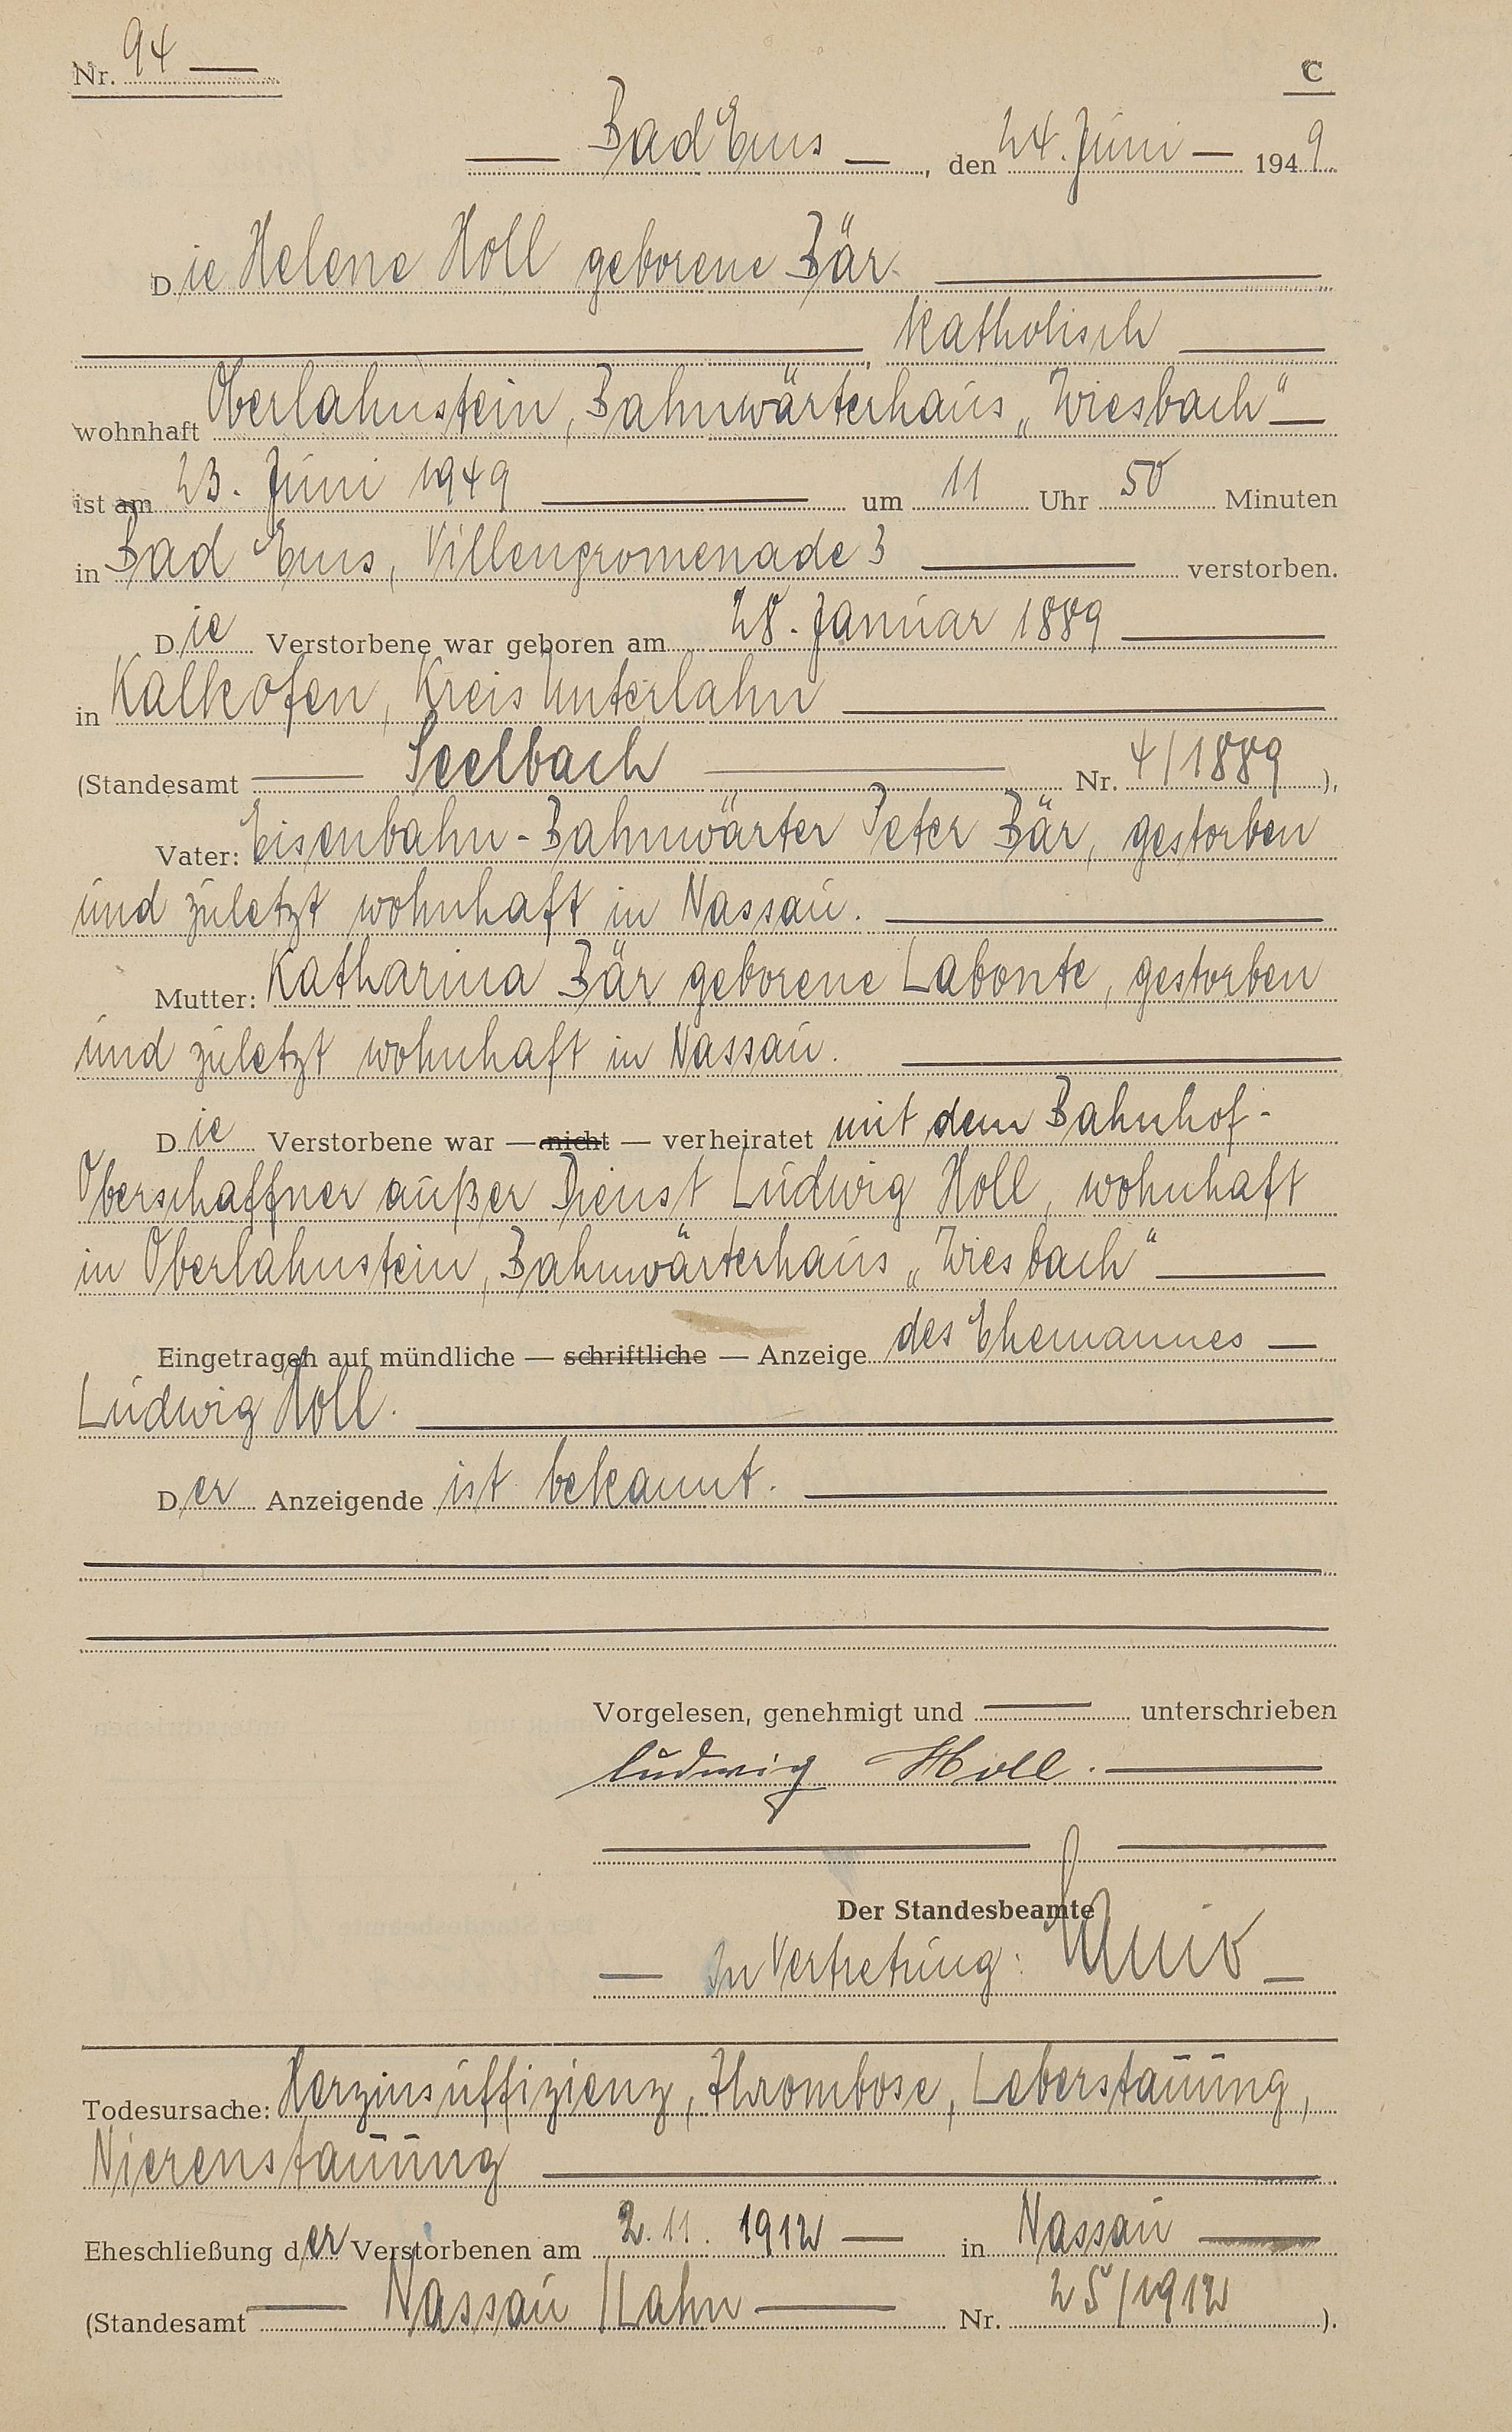 Nr. 94 —
C
— Bad Ems —, den 24. Juni — 1949.
Die Helene Holl geborene Bär.
katholisch —
wohnhaft Oberlahnstein, Bahnwärterhaus „Wiesbach“ —
ist am 23. Juni 1949 — um 11 Uhr 50 Minuten
in Bad Ems, Villenpromenade 3 — verstorben.
Die Verstorbene war geboren am 28. Januar 1889 —
in Kalkofen, Kreis Unterlahn —
(Standesamt — Seelbach — Nr. 4/1889),
Vater: Eisenbahn-Bahnwärter Peter Bär, gestorben
und zuletzt wohnhaft in Nassau. —
Mutter: Katharina Bär geborene Labonte, gestorben
und zuletzt wohnhaft in Nassau. —
Die Verstorbene war — nicht — verheiratet mit dem Bahnhof-
Oberschaffner außer Dienst Ludwig Holl, wohnhaft
in Oberlahnstein, Bahnwärterhaus „Wiesbach“ —
Eingetragen auf mündliche — schriftliche — Anzeige des Ehemannes —
Ludwig Holl. —
Der Anzeigende ist bekannt. —
Vorgelesen, genehmigt und — unterschrieben
Ludwig Holl. —
Der Standesbeamte
— In Vertretung: —
Todesursache: Herzinsuffizienz, Thrombose, Leberstauung,
Nierenstauung —
Eheschließung der Verstorbenen am 2. 11. 1912 — in Nassau —
(Standesamt — Nassau/Lahn — Nr. 25/1912).